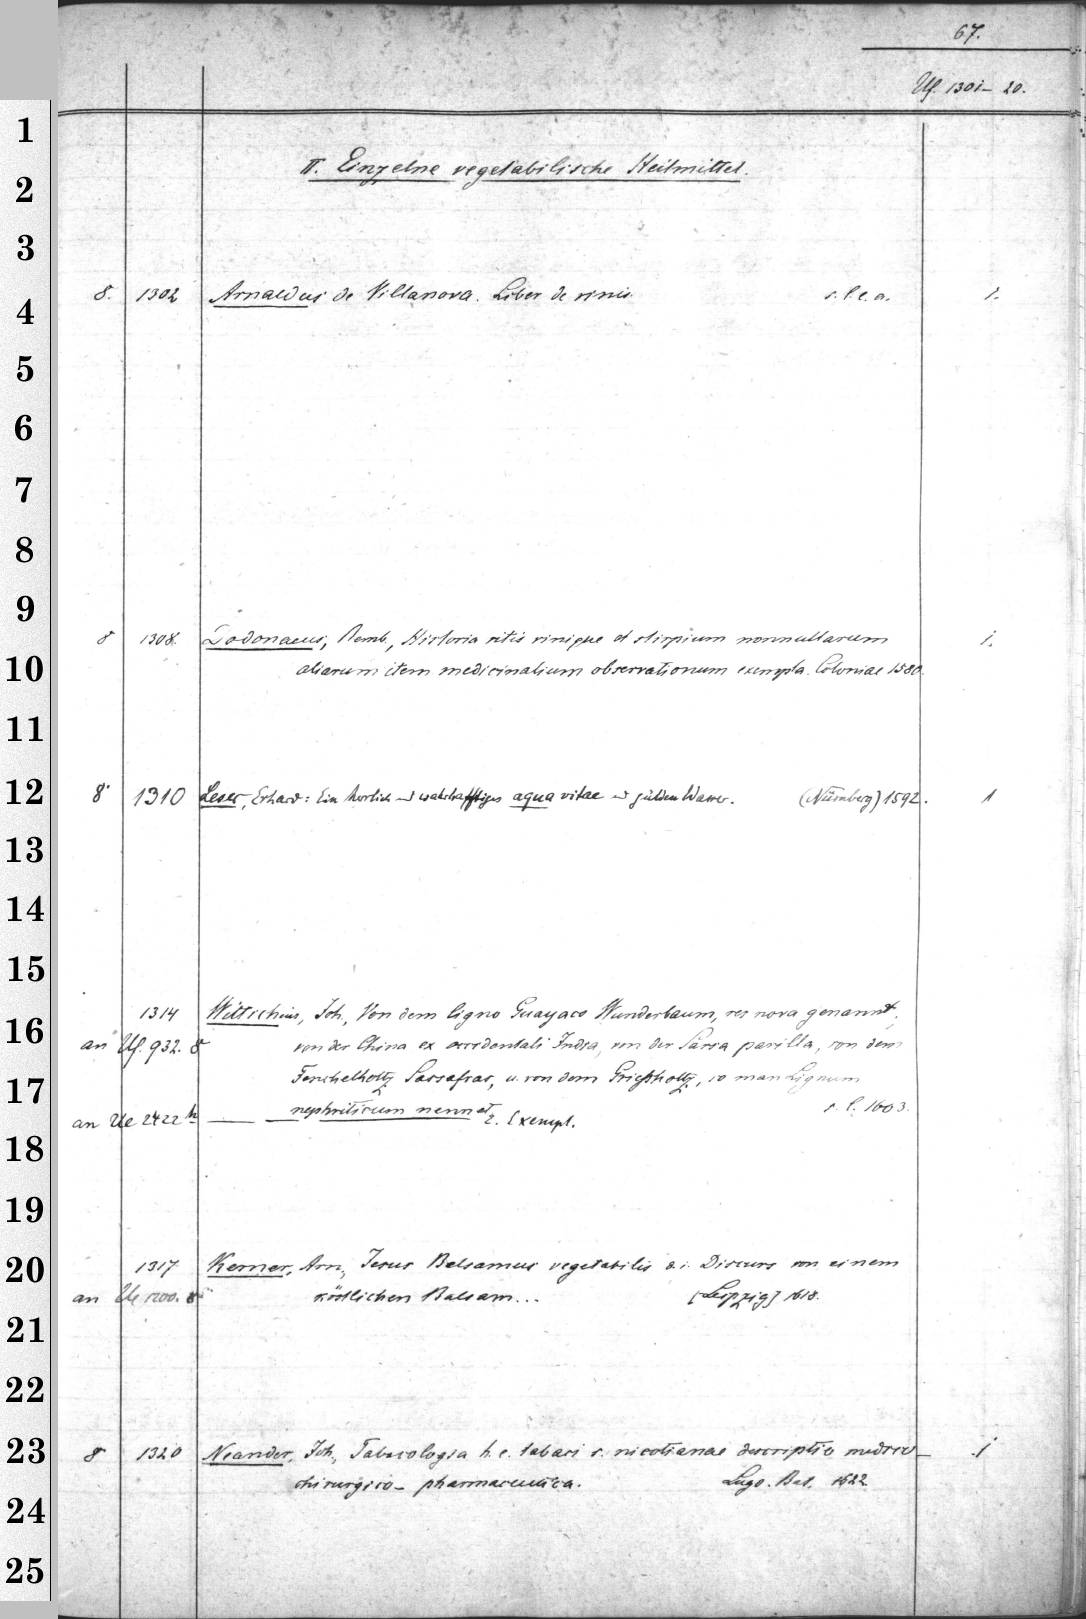 67.
Uf. 1301–20.
II. Einzelne vegetabilische Heilmittel.
8. 1302 Arnaldus de Villanova. Liber de vinis. s. l. e. a. 1.
8 1308. Dodonaeus, Remb., Historia vitis vinique et stirpium nonnullarum 1.
aliarum item medicinalium observationum exempla. Coloniae 1580.
8° 1310 Leser, Erhard: Ein herrlich und wahrhafftiges aqua vitae und gülden Wasser. (Nürnberg) 1592. 1
1314 Wittichius, Joh., Von dem ligno Guayaco Wunderbaum, res nova genannt,
an Uf. 932. 8° von der China ex occidentali India, von der Sarsa parilla, von dem
Fenchelholtz Sassafras, u. von dem Griessholtz, so man Lignum
nephriticum nennet s. l. 1603.
an Ue 2422 h 2. Exempl.
1317 Kerner, Arn., Jesus Balsamus vegetabilis d. i. Discurs von einem
an Ue 1200. 8° köstlichen Balsam... [Leipzig] 1618.
8 1320 Neander, Joh., Tabacologia h. e. tabaci s. nicotianae descriptio medico– 1
chirurgico–pharmaceutica. Lugd. Bat. 1622
1
2
3
4
5
6
7
8
9
10
11
12
13
14
15
16
17
18
19
20
21
22
23
24
25